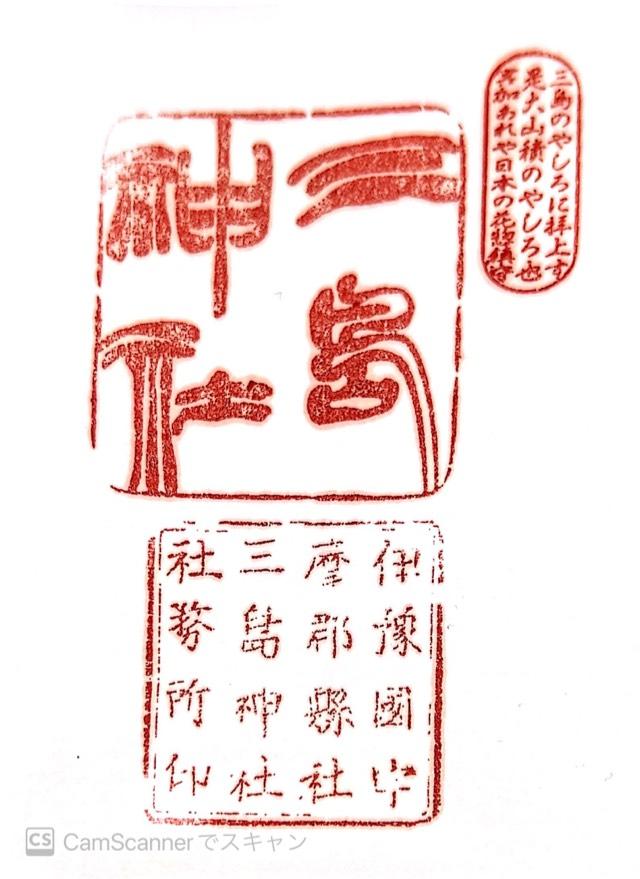 三島のやしろに拝上す
是大山積のやしろ也
日本の花
三島
神社
伊豫國宇
摩郡縣社
三島神社
社務所印
CS CamScannerでスキャン